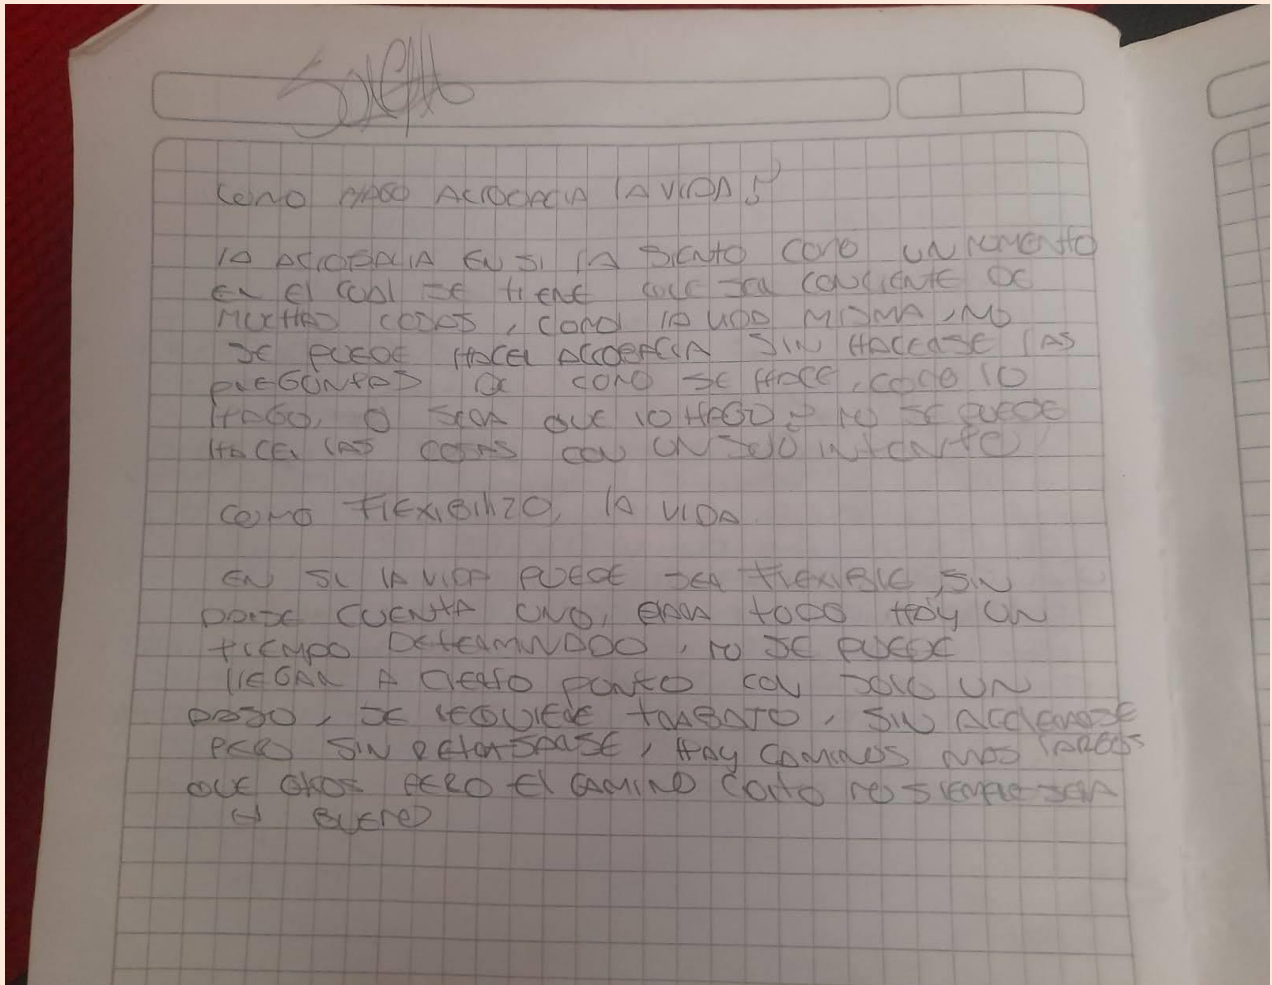 COMO HAGO ACROBACIA LA VIDA ?
LA ACROBACIA EN SI LA SIENTO COMO UN MOMENTO
EN EL CUAL SE TIENE QUE SER CONCIENTE DE
MUCHAS COSAS, COMO LA VIDA MISMA, NO
SE PUEDE HACER ACROBACIA SIN HACERSE LAS
PREGUNTAS DE COMO SE HACE, COMO LO
HAGO, O SERA QUE LO HAGO? NO SE PUEDE
HACER LAS COSAS CON UN SOLO INTENTO
COMO FLEXIBILIZO LA VIDA
EN SI LA VIDA PUEDE SER FLEXIBLE SIN
DARSE CUENTA UNO, PARA TODO HAY UN
TIEMPO DETERMINADO, NO SE PUEDE
LLEGAR A CIERTO PUNTO CON SOLO UN
PASO, SE REQUIERE TRABAJO, SIN ACELERARSE
PERO SIN RETRASARSE, HAY CAMINOS MAS LARGOS
QUE OTROS PERO EL CAMINO CORTO NO SIEMPRE SERA
EL BUENO